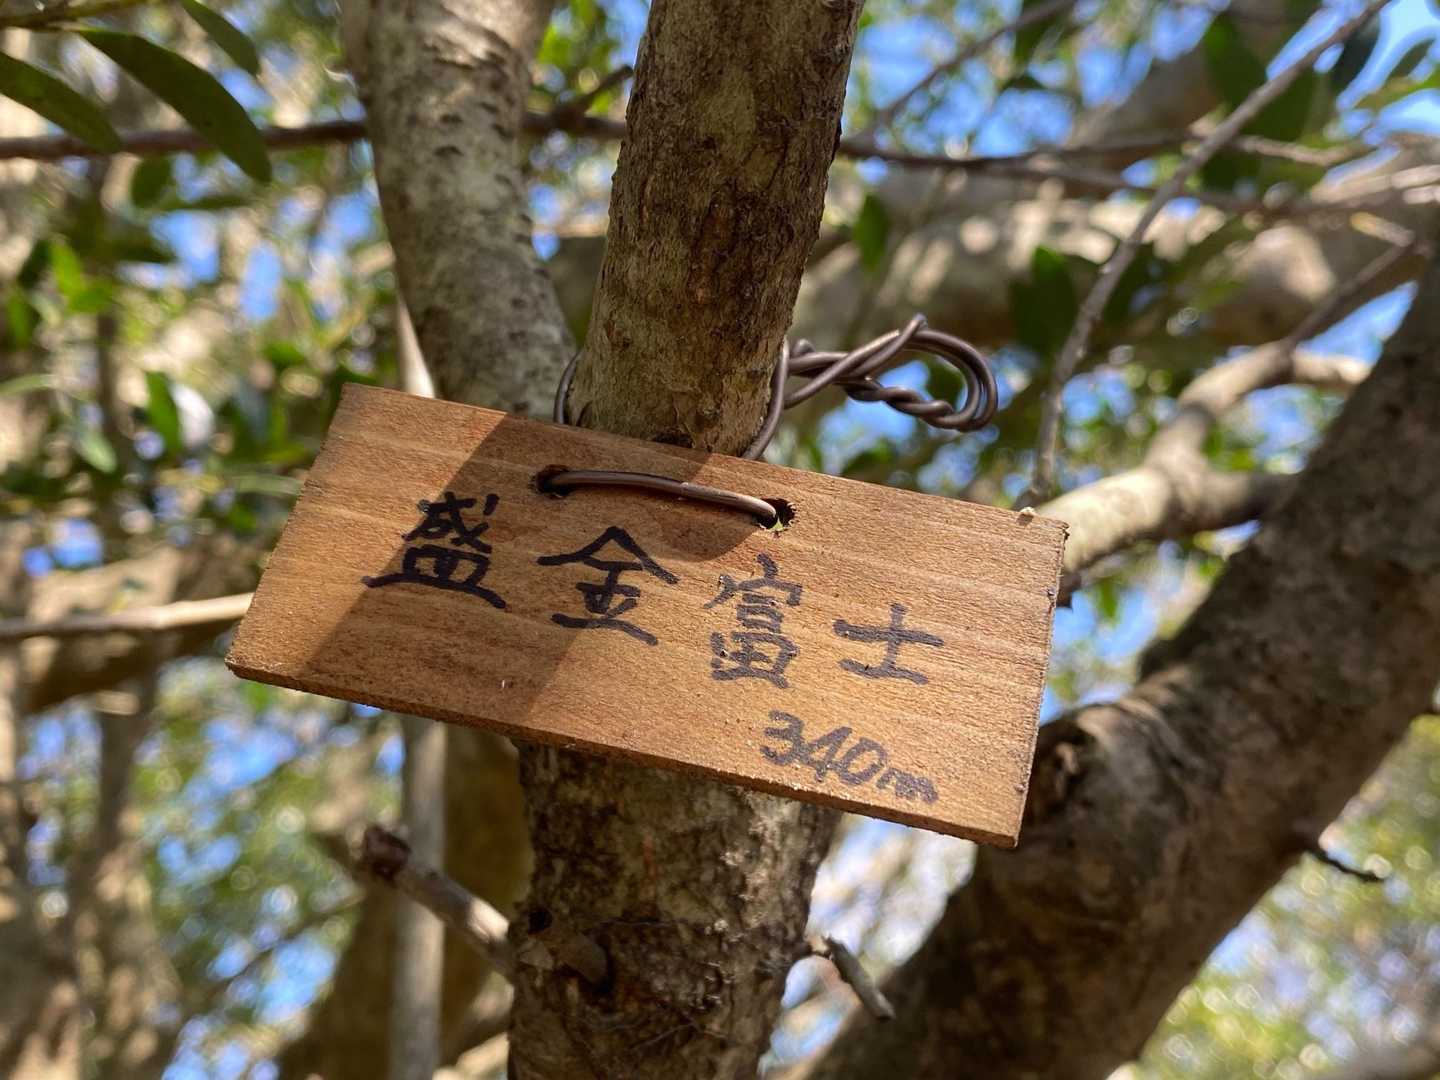 盛金富士
340m